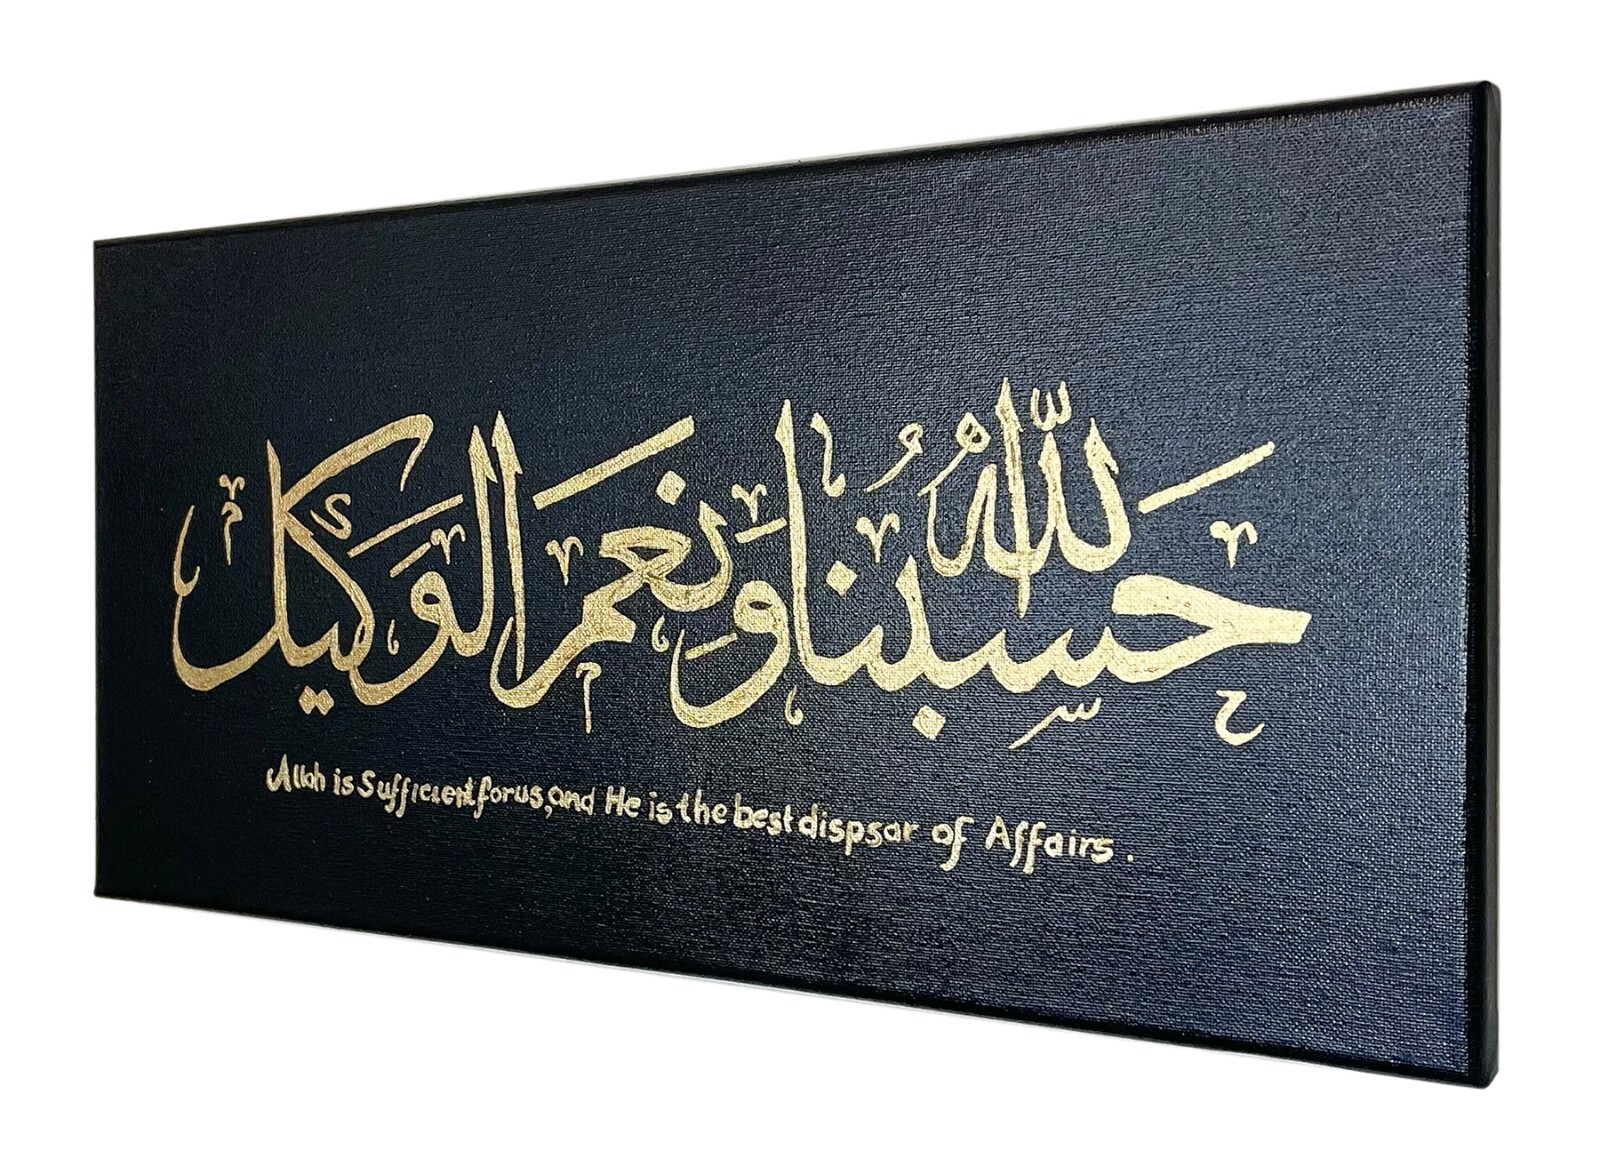 حَسْبُنَا اللهُ وَنِعْمَ الْوَكِيل
Allah is Sufficient for us, and He is the best dispsar of Affairs.